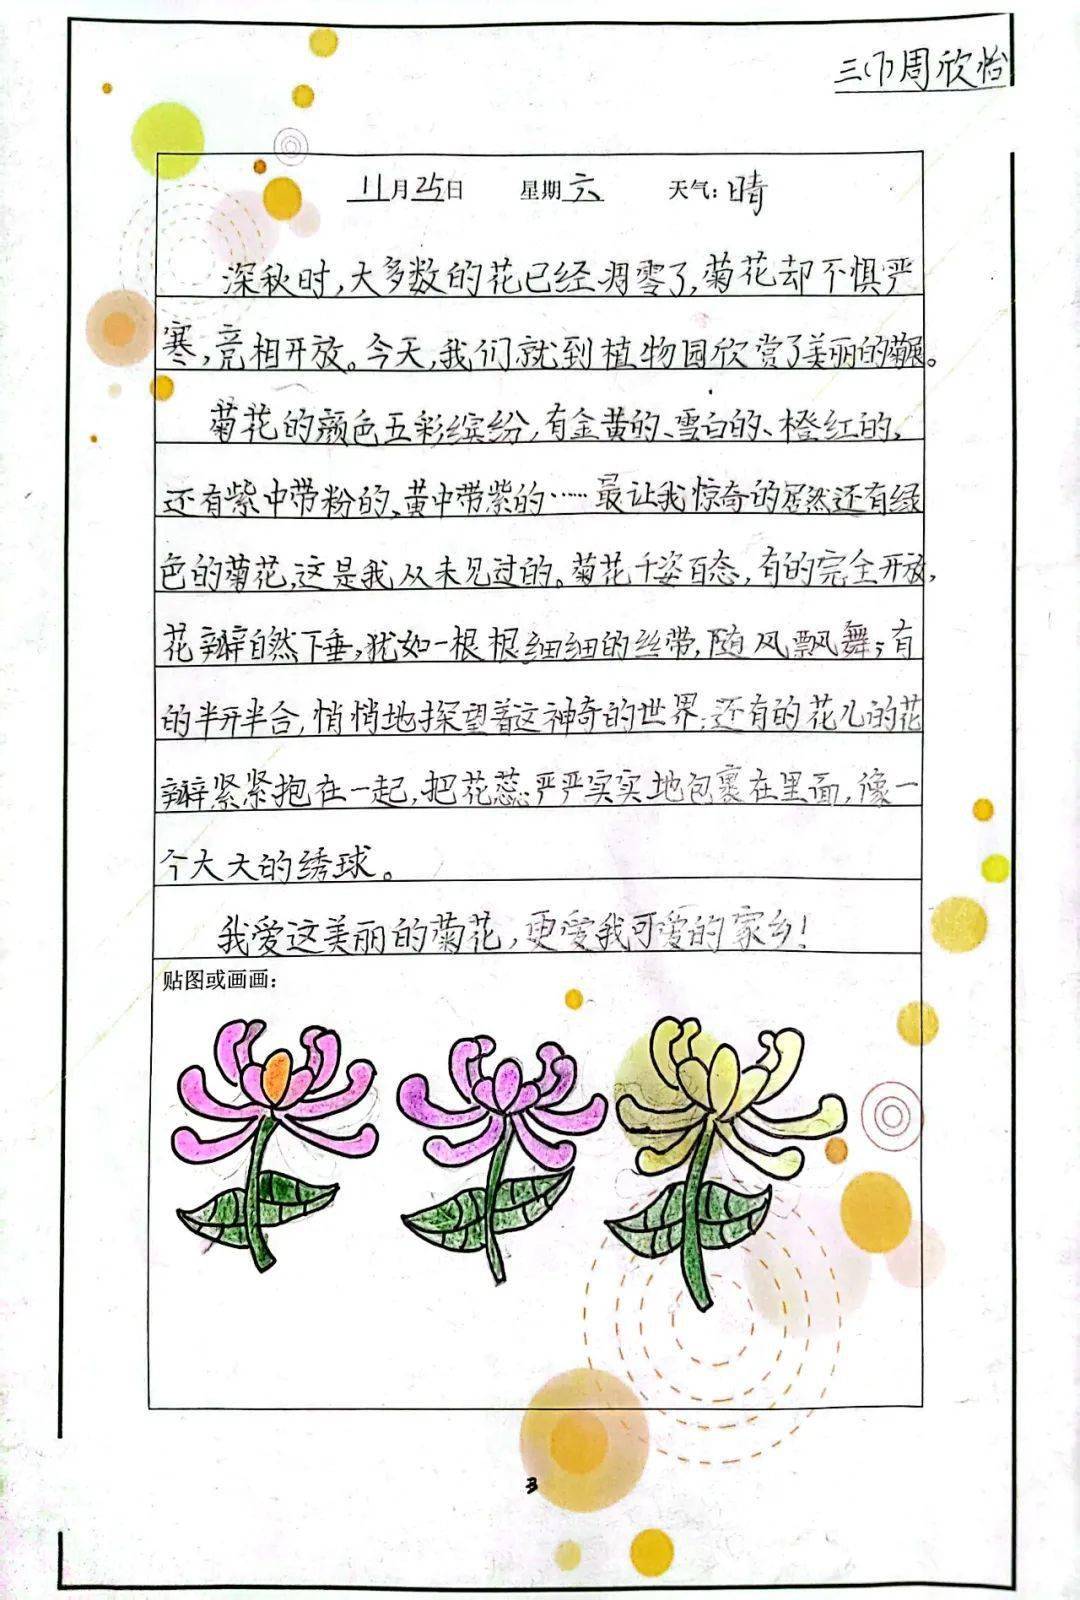 三(1)周欣怡
11月25日 星期六 天气:晴
深秋时,大多数的花已经凋零了,菊花却不惧严
寒,竞相开放。今天,我们就到植物园欣赏了美丽的菊展。
菊花的颜色五彩缤纷,有金黄的、雪白的、橙红的,
还有紫中带粉的、黄中带紫的……最让我惊奇的居然还有绿
色的菊花,这是我从未见过的。菊花千姿百态,有的完全开放,
花瓣自然下垂,犹如一根根细细的丝带,随风飘舞;有
的半开半合,悄悄地探望着这神奇的世界;还有的花儿的花
瓣紧紧抱在一起,把花蕊严严实实地包裹在里面,像一
个大大的绣球。
我爱这美丽的菊花,更爱我可爱的家乡!
贴图或画画:
3